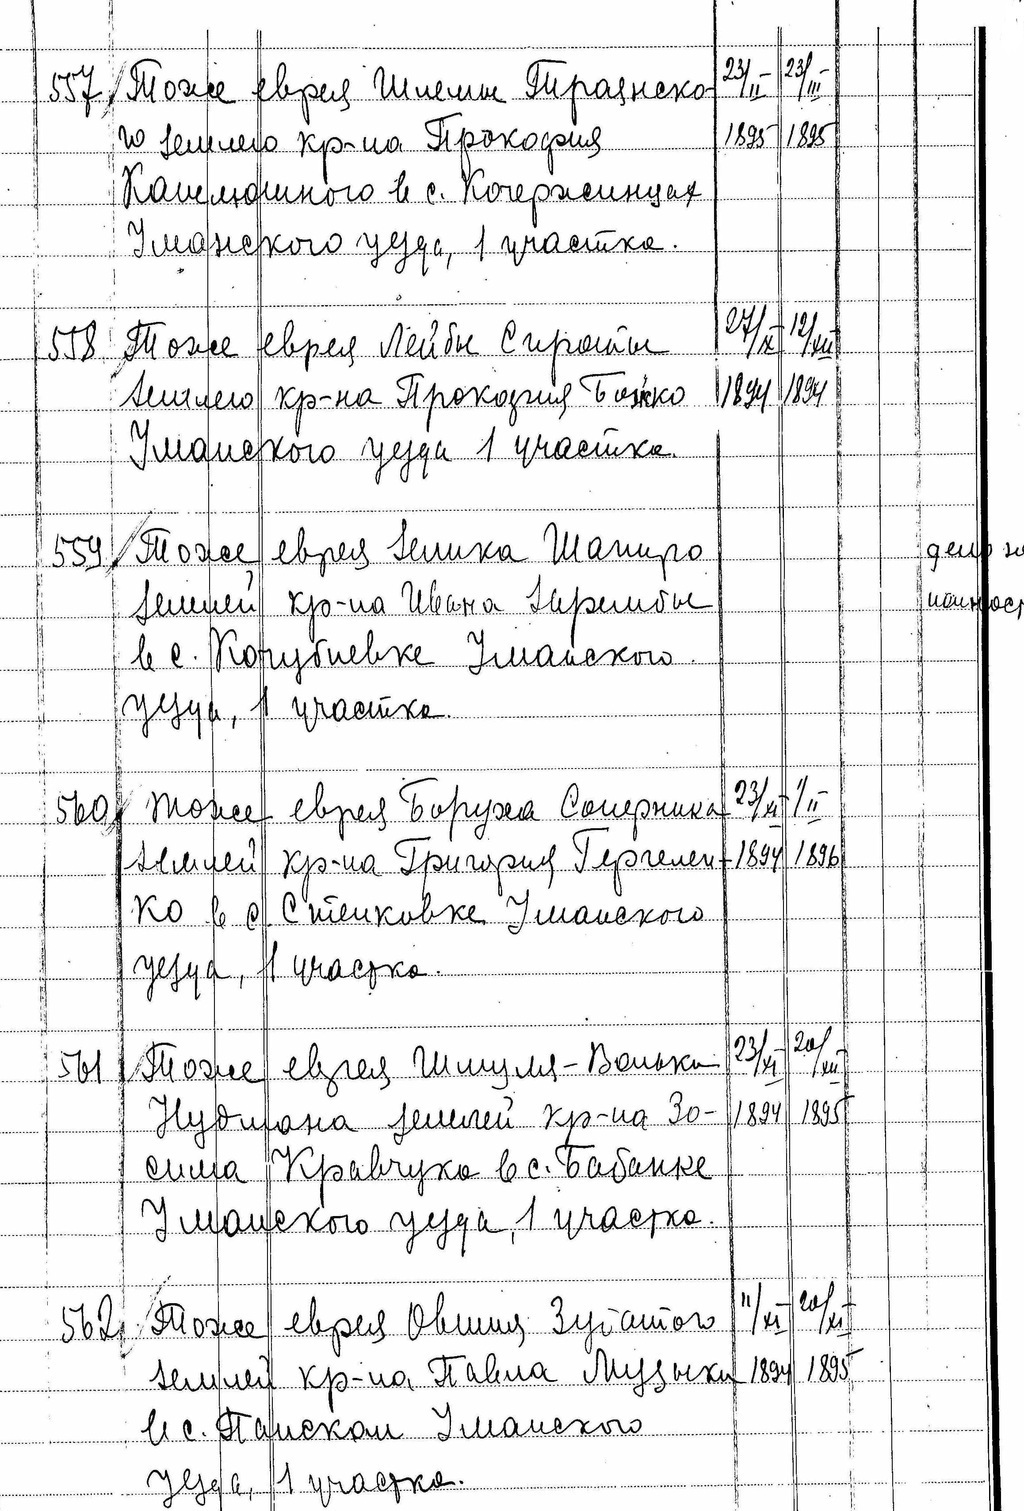 557 Тоже еврея Шлемы Траянско- 23/II 23/III
го землею кр-на Прокофия 1895 1895
Капелюшного в с. Кочержинцах
Уманского уезда, 1 участка.
558 Тоже еврея Лейбы Сироты 27/IX 12/XII
землею кр-на Прокофия Божко 1894 1894
Уманского уезда 1 участка.
559 Тоже еврея Зелика Шапиро дело
землей кр-на Ивана Зарембы
в с. Кочубиевке Уманского
уезда, 1 участка.
560 Тоже еврея Боруха Соперника 23/XI 1/II
землей кр-на Григория Гергелен- 1894 1896
ко в с. Стенковке Уманского
уезда, 1 участка.
561 Тоже еврея Шмуля-Волька 23/XI 20/XII
Нудмана землей кр-на Зо- 1894 1895
сима Кравчука в с. Бабанке
Уманского уезда, 1 участка.
562 Тоже еврея Овшия Зубатого 11/XI 20/XI
землей кр-на Павла Музыки 1894 1895
в с. Панском Уманского
уезда, 1 участка.